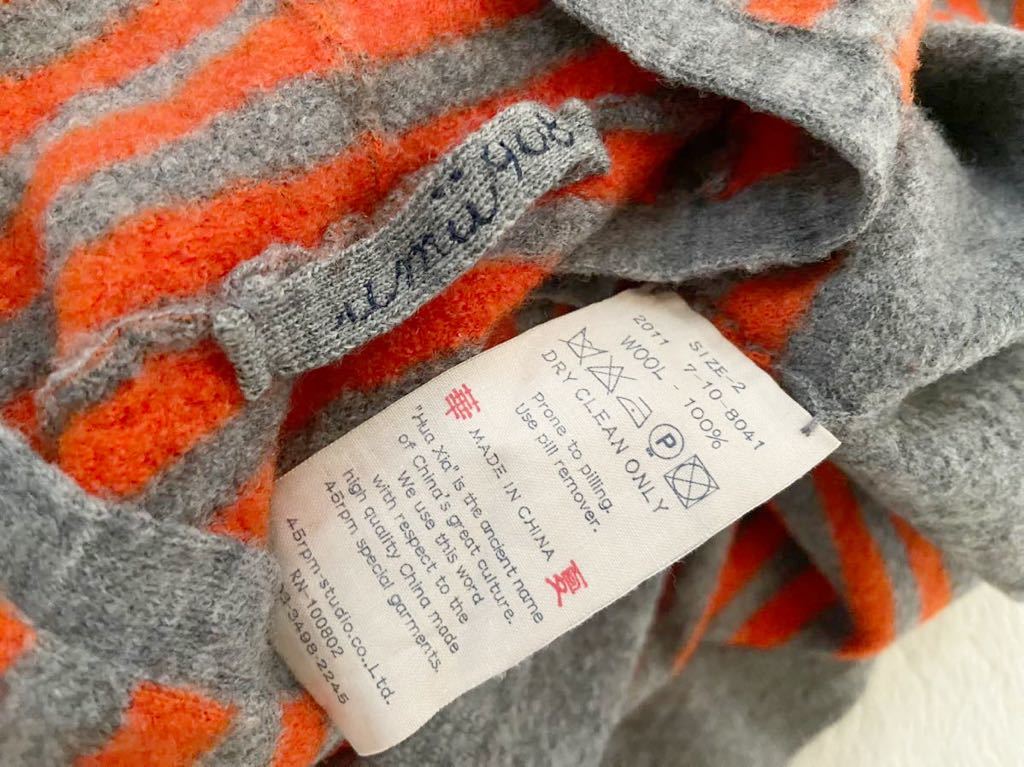 umii 908
2011 SIZE-2
7-10-8041
WOOL - 100%
P
DRY CLEAN ONLY
Prone to pilling.
Use pill remover.
華 MADE IN CHINA 夏
"Hua Xia" is the ancient name
of China's great culture.
We use this word
with respect to the
high quality China made
45rpm special garments.
45rpm studio.co.,Ltd.
RN-100802
03.3498.2245